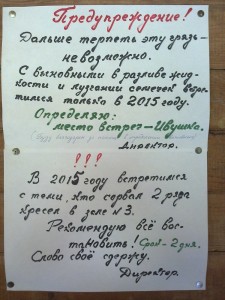 Предупреждение!
Дальше терпеть эту грязь-
невозможно.
С виновными в разливе жид-
кости и лузгании семечек встре-
тимся только в 2015 году.
Определяю:
место встреч-Ивушка.
Директор.
!!!
В 2015 году встретимся
с теми, кто сорвал 2 ряда
кресел в зале №3.
Рекомендую всё вос-
тановить! Срок-2 дня.
Слово своё сдержу.
Директор